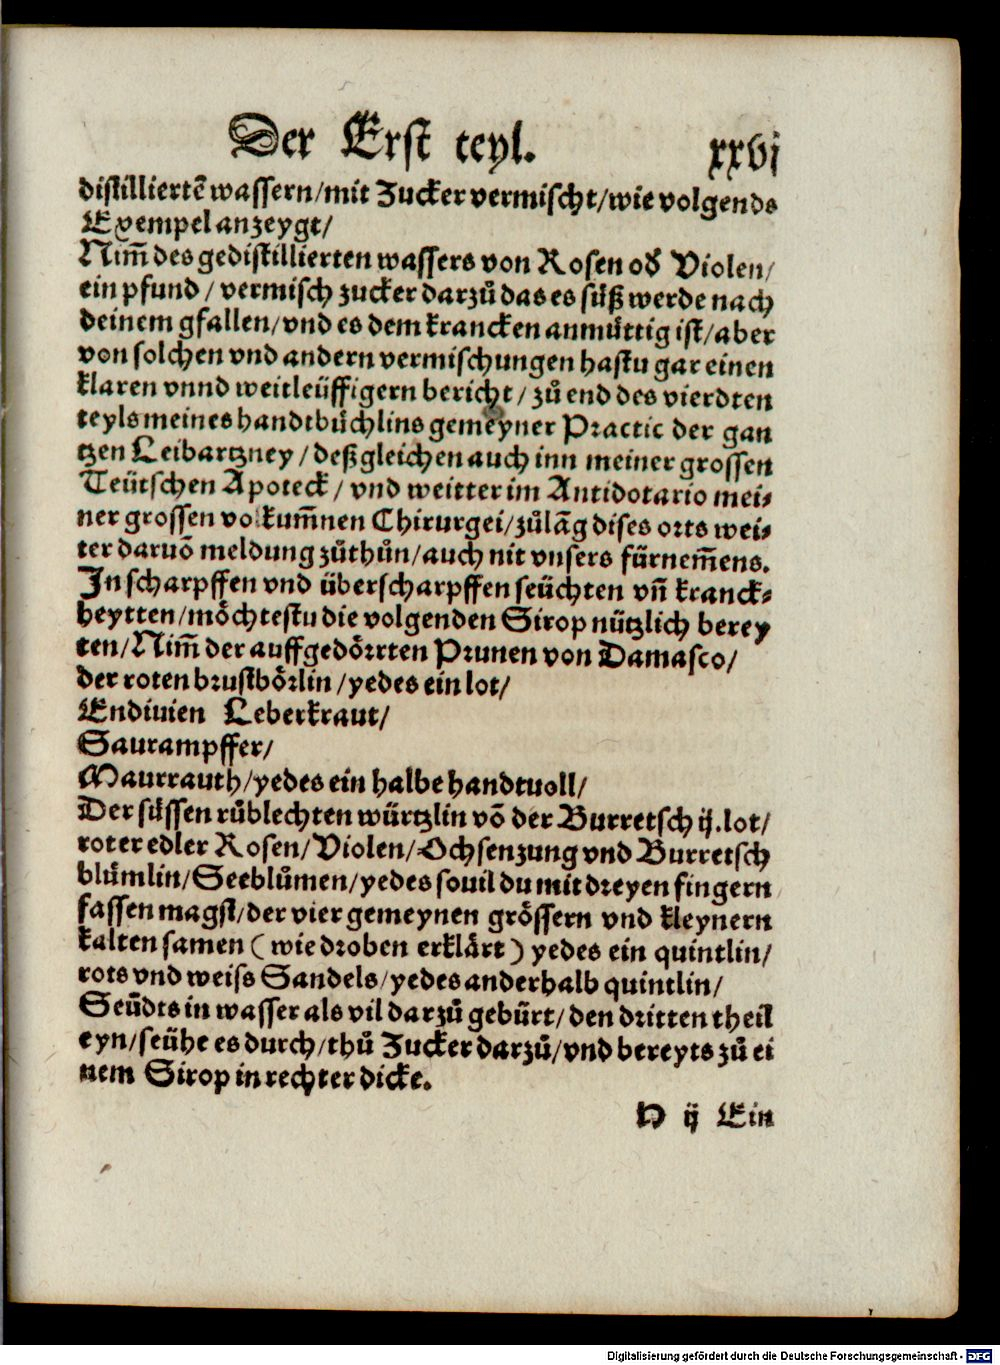 Der Erst teyl. xxvj
distilliertē wassern/mit Zucker vermischt/wie volgends
Exempel anzeygt/
Nim̄ des gedistillierten wassers von Rosen od' Violen/
ein pfund / vermisch zucker darzů das es süß werde nach
deinem gfallen/vnd es dem krancken anmůttig ist/aber
von solchen vnd andern vermischungen hastu gar einen
klaren vnnd weitleüffigern bericht / zů end des vierdten
teyls meines handtbůchlins gemeyner Practic der gan
tzen Leibartzney / deßgleichen auch inn meiner grossen
Teütschen Apoteck / vnd weitter im Antidotario mei⸗
ner grossen volkum̄nen Chirurgei/zůlāg dises orts wei⸗
ter daruō meldung zůthůn/auch nit vnsers fürnem̄ens.
In scharpffen vnd überscharpffen seüchten vn̄ kranck⸗
heytten/möchtestu die volgenden Sirop nützlich berey
ten/Nim̄ der auffgedörrten Prunen von Damasco/
der roten brustbörlin /yedes ein lot/
Endiuien Leberkraut/
Saurampffer/
Maurrauth/yedes ein halbe handtuoll/
Der süssen rüblechten würtzlin vō der Burretsch ij.lot/
roter edler Rosen/Violen/Ochsenzung vnd Burretsch
blůmlin/Seeblůmen/yedes souil du mit dreyen fingern
fassen magst/der vier gemeynen grössern vnd kleynern
kalten samen ( wie droben erklärt ) yedes ein quintlin/
rots vnd weiss Sandels/yedes anderhalb quintlin/
Seüdts in wasser als vil darzů gebürt/den dritten theil
eyn/seühe es durch/thů Zucker darzů/vnd bereyts zů ei
nem Sirop in rechter dicke.
H ij Ein
Digitalisierung gefördert durch die Deutsche Forschungsgemeinschaft - DFG